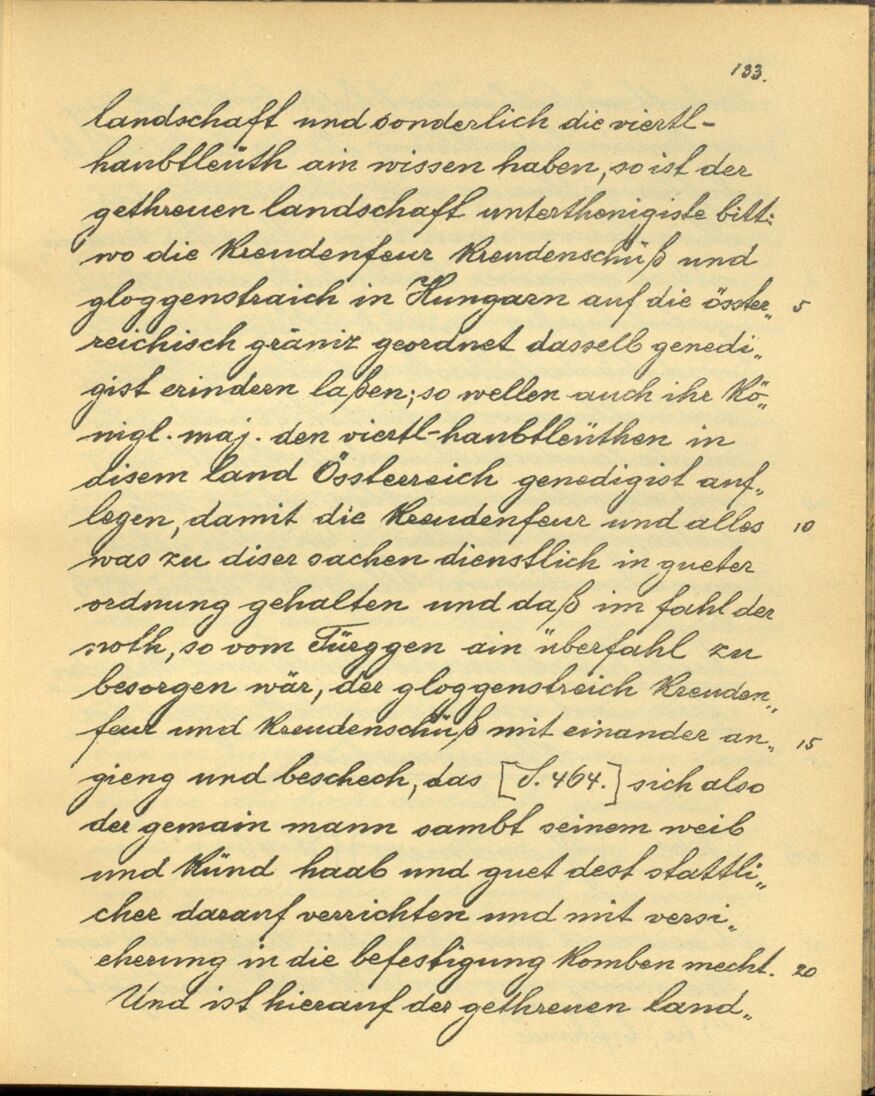 133.
landschaft und sonderlich die viertl-
haubtleüth ain wissen haben, so ist der
gethreuen landschaft unterthenigiste bitt:
wo die Kreudenfeur Kreudenschüß und
gloggenstraich in Hungarn auf die österr„ 5
reichisch gräniz geordnet dasselb genedi„
gist erindern laßen; so wellen auch ihr Kö„
nigl. maj. den viertl-haubtleüthen in
disem land Össterreich genedigist auf„
legen, damit die Kreudenfeur und alles 10
was zu diser sachen dienstlich in gueter
ordnung gehalten und daß im fahl der
noth, so vom Türggen ain überfahl zu
besorgen wär, der gloggenstreich Kreuden„
feur und Kreudenschüß mit einander an„ 15
gieng und beschech, das [S. 464.] sich also
der gemain mann sambt seinem weib
und Künd haab und guet dest stattli„
cher darauf verrichten und mit versi„
cherung in die befestigung Komben mecht. 20
Und ist hierauf der gethreuen land„